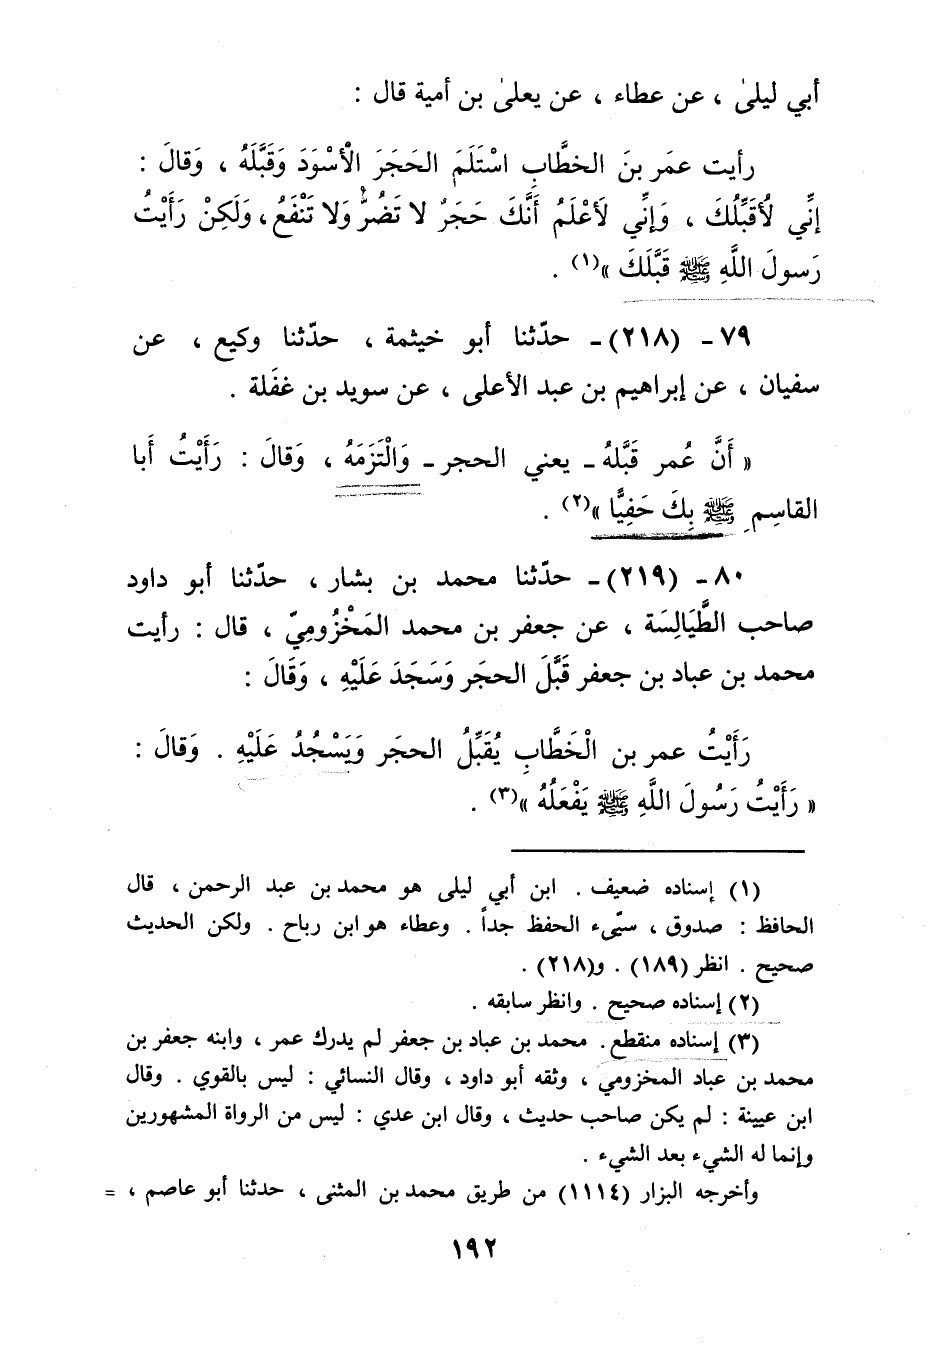 أبي ليلىٰ ، عن عطاء ، عن يعلىٰ بن أمية قال :
رأيت عمَر بنَ الخطَّابِ اسْتَلَمَ الحَجَرَ الْأسْوَدَ وَقَبَّلَهُ ، وَقالَ :
إنِّي لُأقَبِّلُكَ ، وَإنِّي لَأعْلَمُ أنَّكَ حَجَرٌ لا تَضُرُّ وَلا تَنْفَعُ، وَلَكِنْ رَأيْتُ
رَسولَ اللَّهِ ﷺ قَبَّلَكَ »(١) .
٧٩ - (٢١٨) - حدّثنا أبو خيثمة ، حدّثنا وكيع ، عن
سفيان ، عن إبراهيم بن عبد الأعلى ، عن سويد بن غفَلة .
« أَنَّ عُمر قَبَّلهُ - يعني الحجر - وَالْتَزَمَهُ ، وَقالَ : رَأَيْتُ أَبا
القاسِمِ ﷺ بِكَ حَفِيًّا »(٢) .
٨٠ - (٢١٩) - حدّثنا محمد بن بشار ، حدّثنا أبو داود
صاحب الطَّيَالِسَة ، عن جعفر بن محمد المَخْزُومِيّ ، قال : رأيت
محمد بن عباد بن جعفر قَبَّلَ الحجَر وَسَجَدَ عَلَيْهِ ، وَقَالَ :
رَأَيْتُ عمر بن الْخَطَّابِ يُقَبِّلُ الحجَر وَيَسْجُدُ عَلَيْهِ . وَقالَ :
« رَأَيْتُ رَسُولَ اللَّهِ ﷺ يَفْعَلُهُ »(٣) .
(١) إسناده ضعيف . ابن أبي ليلى هو محمد بن عبد الرحمن ، قال
الحافظ : صدوق ، سيّىء الحفظ جداً . وعطاء هو ابن رباح . ولكن الحديث
صحيح . انظر (١٨٩) . و(٢١٨) .
(٢) إسناده صحيح . وانظر سابقه .
(٣) إسناده منقطع . محمد بن عباد بن جعفر لم يدرك عمر ، وابنه جعفر بن
محمد بن عباد المخزومي ، وثقه أبو داود ، وقال النسائي : ليس بالقوي . وقال
ابن عيينة : لم يكن صاحب حديث ، وقال ابن عدي : ليس من الرواة المشهورين
وإنما له الشيء بعد الشيء .
وأخرجه البزار (١١١٤) من طريق محمد بن المثنى ، حدثنا أبو عاصم ، =
١٩٢